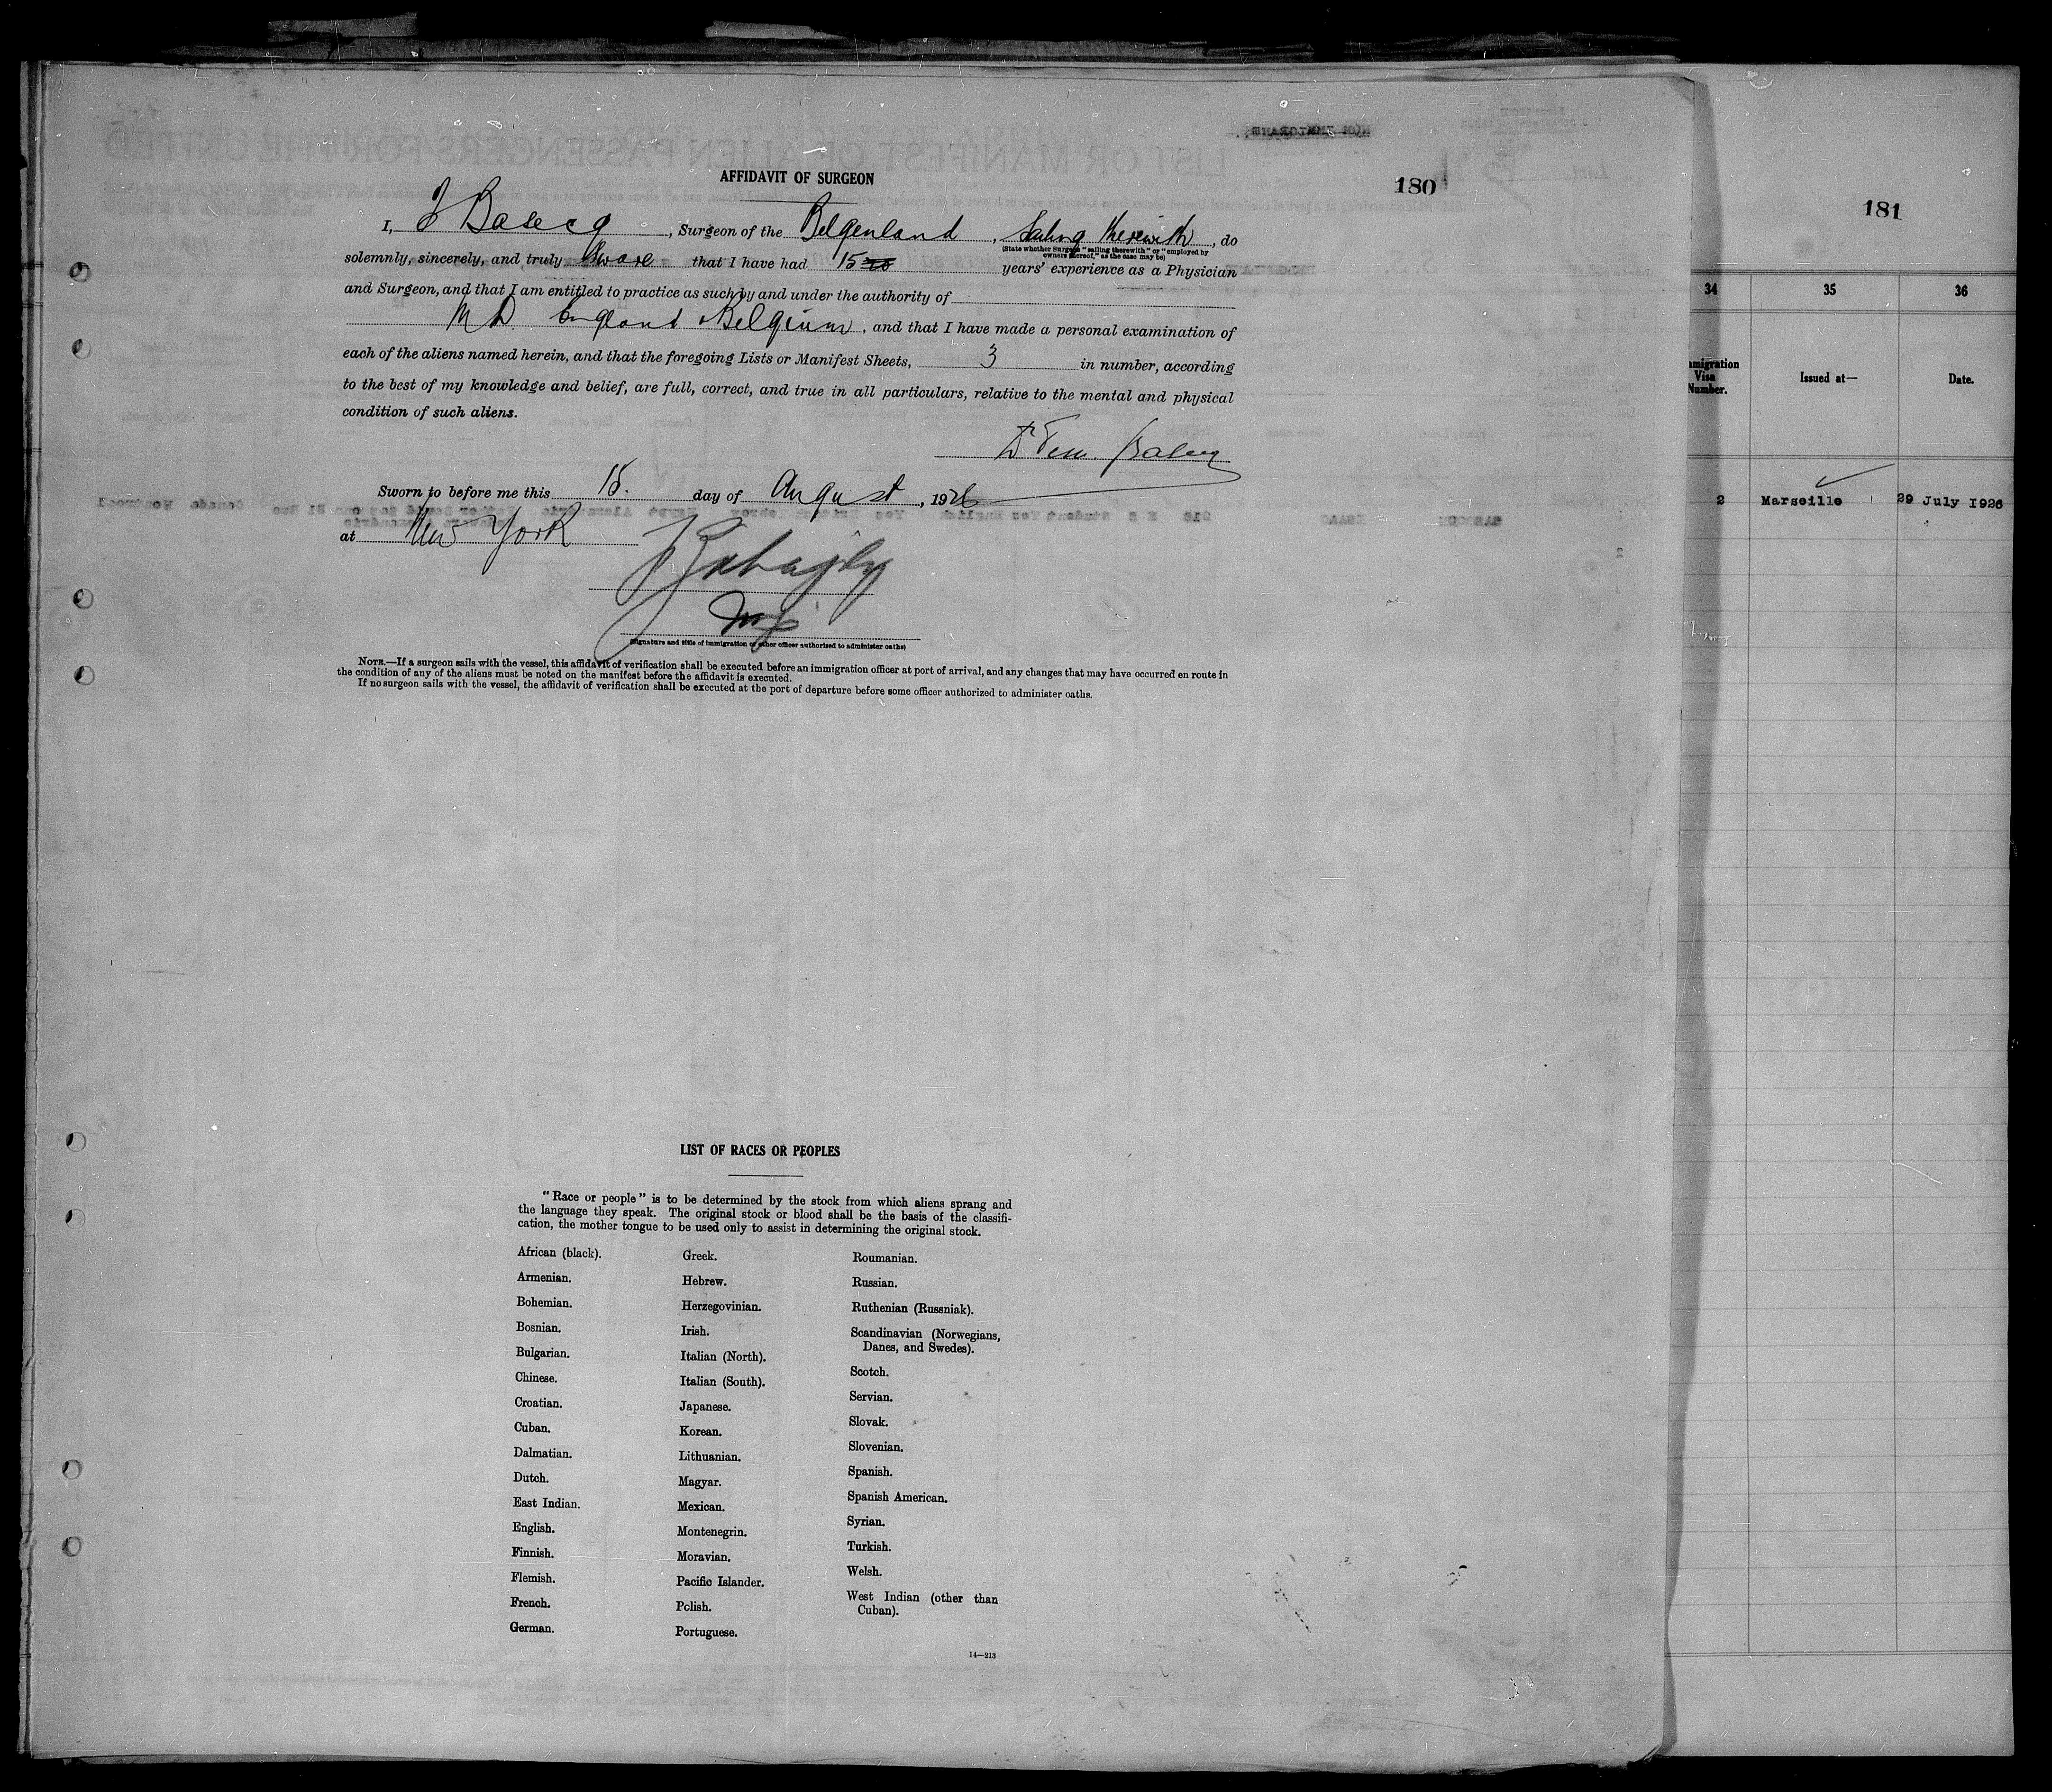 AFFIDAVIT OF SURGEON
180
I, Basecq, Surgeon of the Belgenland, Sailing therewith, do
(State whether Surgeon "sailing therewith" or "employed by
owners thereof," as the case may be)
solemnly, sincerely, and truly Sware that I have had 15 years' experience as a Physician
and Surgeon, and that I am entitled to practice as such by and under the authority of
M D. England & Belgium, and that I have made a personal examination of
each of the aliens named herein, and that the foregoing Lists or Manifest Sheets, 3 in number, according
to the best of my knowledge and belief, are full, correct, and true in all particulars, relative to the mental and physical
condition of such aliens.
Sworn to before me this 15. day of August, 1926
at New York
(Signature and title of immigration or other officer authorized to administer oaths)
NOTE.—If a surgeon sails with the vessel, this affidavit of verification shall be executed before an immigration officer at port of arrival, and any changes that may have occurred en route in
the condition of any of the aliens must be noted on the manifest before the affidavit is executed.
If no surgeon sails with the vessel, the affidavit of verification shall be executed at the port of departure before some officer authorized to administer oaths.
LIST OF RACES OR PEOPLES
"Race or people" is to be determined by the stock from which aliens sprang and
the language they speak. The original stock or blood shall be the basis of the classifi-
cation, the mother tongue to be used only to assist in determining the original stock.
African (black).
Armenian.
Bohemian.
Bosnian.
Bulgarian.
Chinese.
Croatian.
Cuban.
Dalmatian.
Dutch.
East Indian.
English.
Finnish.
Flemish.
French.
German.
Greek.
Hebrew.
Herzegovinian.
Irish.
Italian (North).
Italian (South).
Japanese.
Korean.
Lithuanian.
Magyar.
Mexican.
Montenegrin.
Moravian.
Pacific Islander.
Polish.
Portuguese.
Roumanian.
Russian.
Ruthenian (Russniak).
Scandinavian (Norwegians,
Danes, and Swedes).
Scotch.
Servian.
Slovak.
Slovenian.
Spanish.
Spanish American.
Syrian.
Turkish.
Welsh.
West Indian (other than
Cuban).
14—213
181
34 35 36
mmigration
Visa
Number.
Issued at—
Date.
2 Marseille 29 July 1926